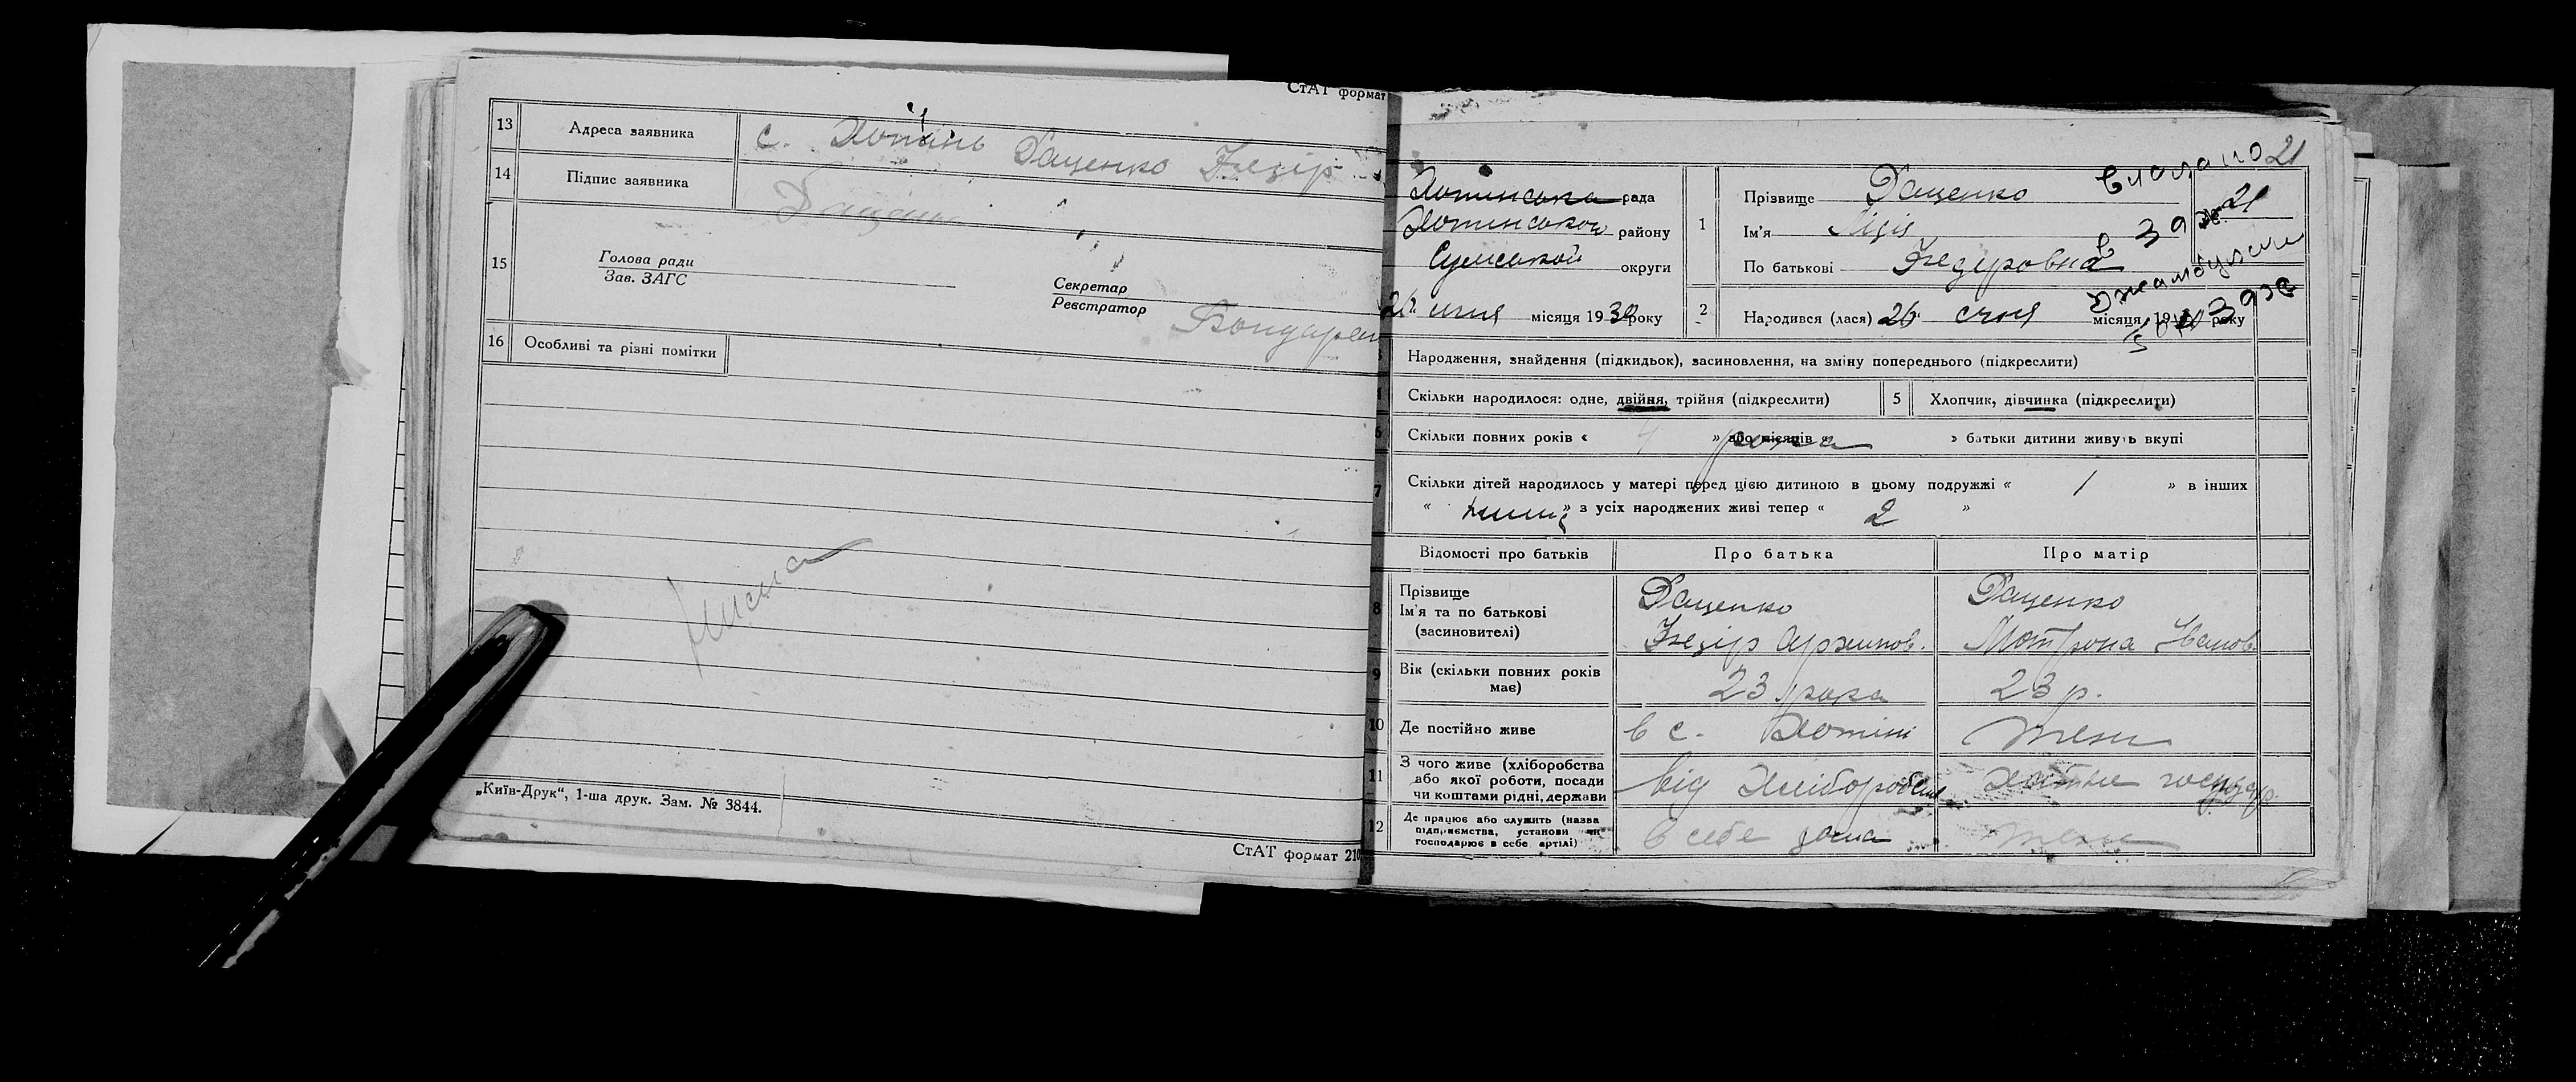 СтАТ формат
13 Адреса заявника с. Хотінь Даценко Федір
14 Підпис заявника Даценко
15 Голова ради
Зав. ЗАГС
Секретар
Реєстратор Бондарен
16 Особливі та різні помітки
„Київ-Друк“, 1-ша друк. Зам. № 3844.
СтАТ формат 210
21
Хотинська рада
Хотинської району
Сумської округи
26 січня місяця 1930 року
1 Прізвище Даценко
Ім'я Лідія
По батькові Федуровна
№ 21
2 Народився (лася) 26 січня місяця 19 року
Народження, знайдення (підкидьок), засиновлення, на зміну попереднього (підкреслити)
Скільки народилося: одне, двійня, трійня (підкреслити) 5 Хлопчик, дівчинка (підкреслити)
6 Скільки повних років « 4 » або місяців « рока » батьки дитини живуть вкупі
7 Скільки дітей народилось у матері перед цією дитиною в цьому подружжі « 1 » в інших
« » з усіх народжених живі тепер « 2 »
Відомості про батьків Про батька Про матір
8 Прізвище
Ім'я та по батькові
(засиновителі)
Даценко
Федір
Даценко
Мотрона Іванов.
9 Вік (скільки повних років
має) 23 рока 23 р.
10 Де постійно живе в с. Хотіні теж
11 З чого живе (хліборобства
або якої роботи, посади
чи коштами рідні, держави
від Хліборобства
12 Де працює або служить (назва
підприємства, установи чи
господарює в себе артілі)
в себе дома теж